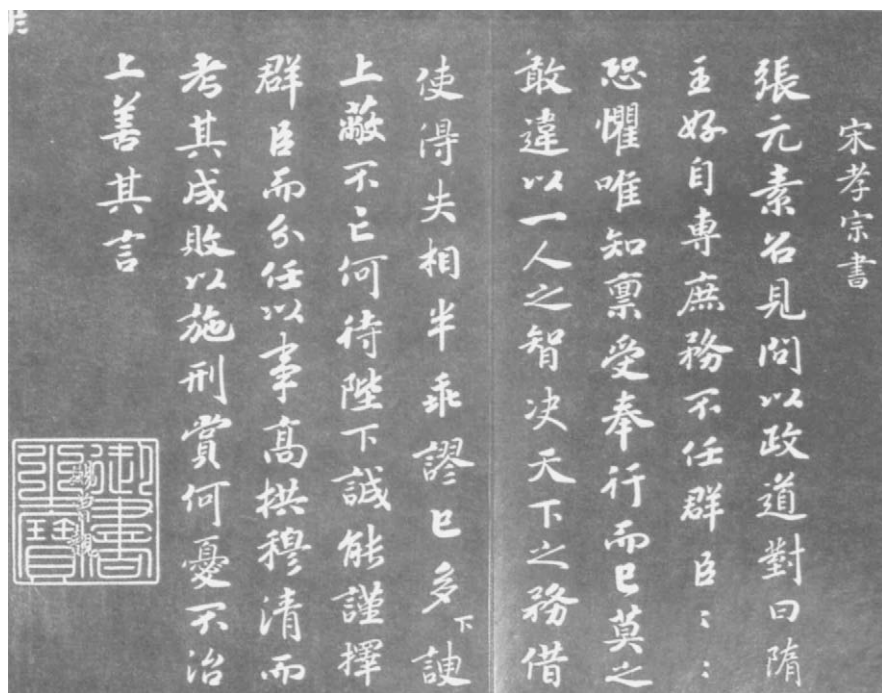 宋孝宗書
張元素召見問以政道對曰隋
主好自專庶務不任群臣〻〻
恐懼唯知禀受奉行而已莫之
敢違以一人之智決天下之務借
使得失相半乖謬已多下諛
上蔽不亡何待陛下誠能謹擇
群臣而分任以事高拱穆清而
考其成敗以施刑賞何憂不治
上善其言
御書之寶